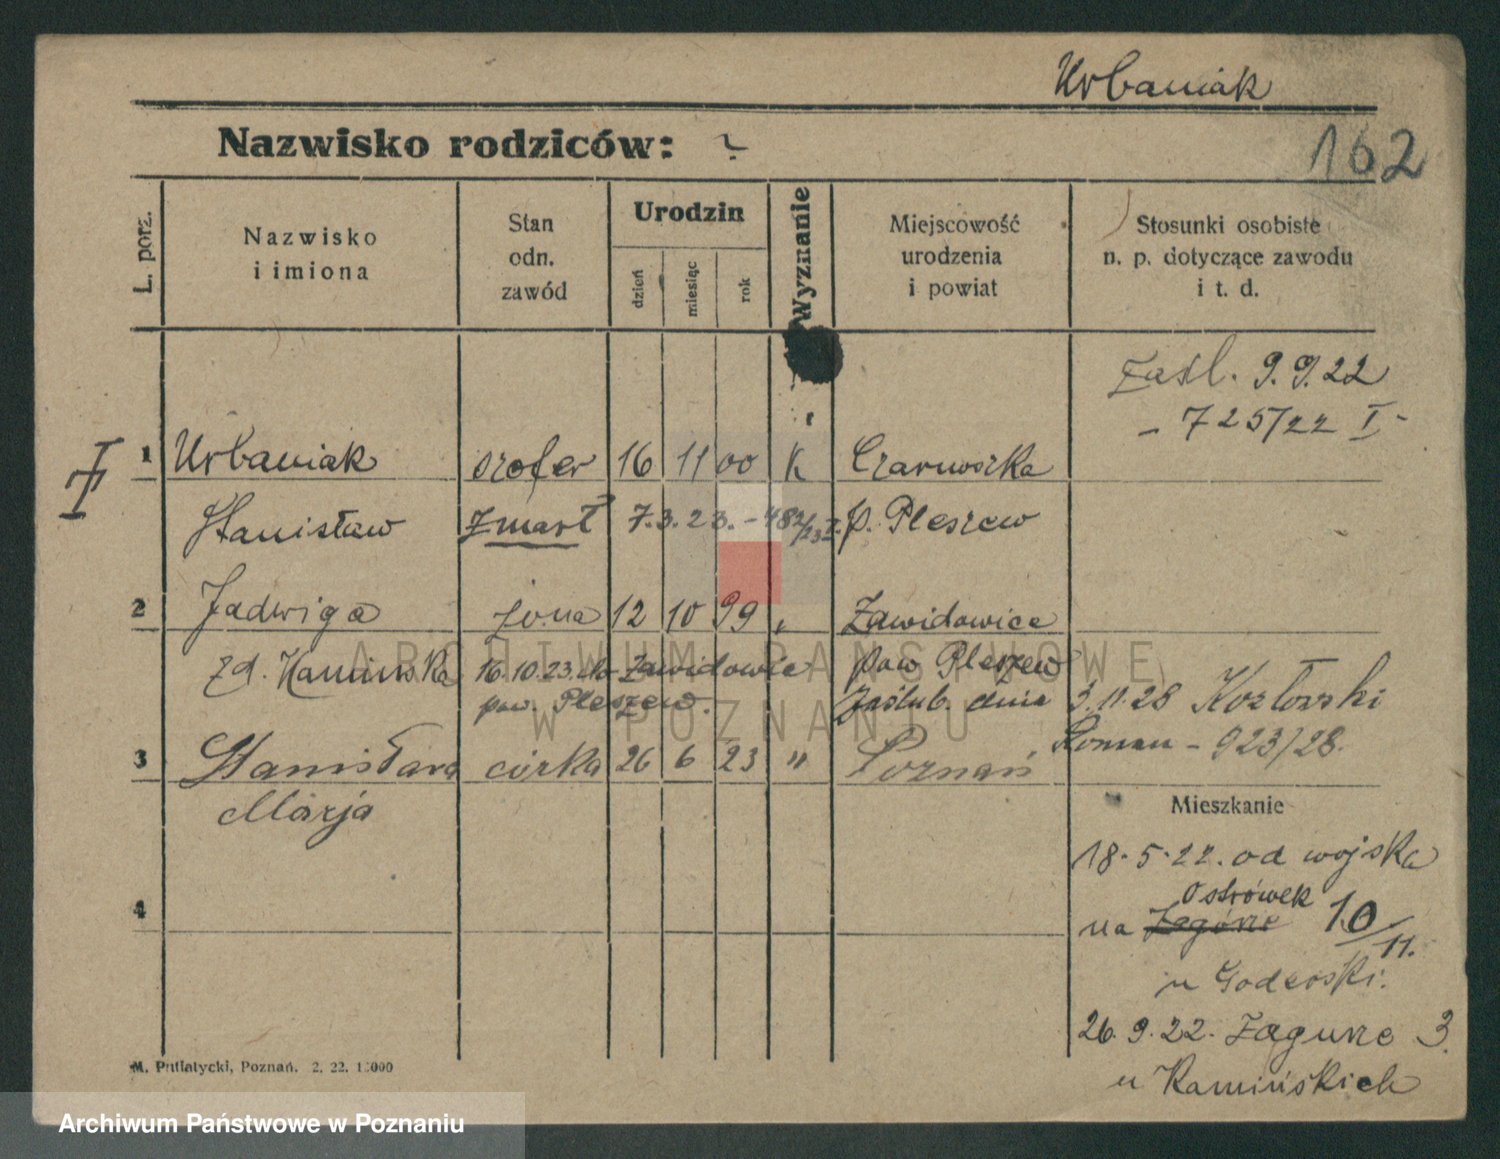 Urbaniak
Nazwisko rodziców: ?
162
L. porz.
Nazwisko
i imiona
Stan
odn.
zawód
Urodzin
dzień
miesiąc
rok
Wyznanie
Miejscowość
urodzenia
i powiat
Stosunki osobiste
n. p. dotyczące zawodu
i t. d.
Zaśl. 9.9.22
- 725/22 I -
1 Urbaniak szofer 16 11 00 K Czarnuszka
Stanisław Zmarł 7.3.23. - 482/23 p. Pleszew
2 Jadwiga żona 12 10 99 " Zawidowice
zd. Kamińska 16.10.23. do Zawidowic pow Pleszew
pow. Pleszew. Zaślub. dnia 3.11.28 Kozłowski
Roman - 923/28.
3 Stanisława córka 26 6 23 " Poznań
Marja
4
Mieszkanie
18.5.22. od wojska
Ostrówek
na Zagórze 10/11.
u
26.9.22. Zagórze 3.
u Kamińskich
M. Putiatycki, Poznań. 2. 22. 15000
ARCHIWUM PAŃSTWOWE
W POZNANIU
Archiwum Państwowe w Poznaniu